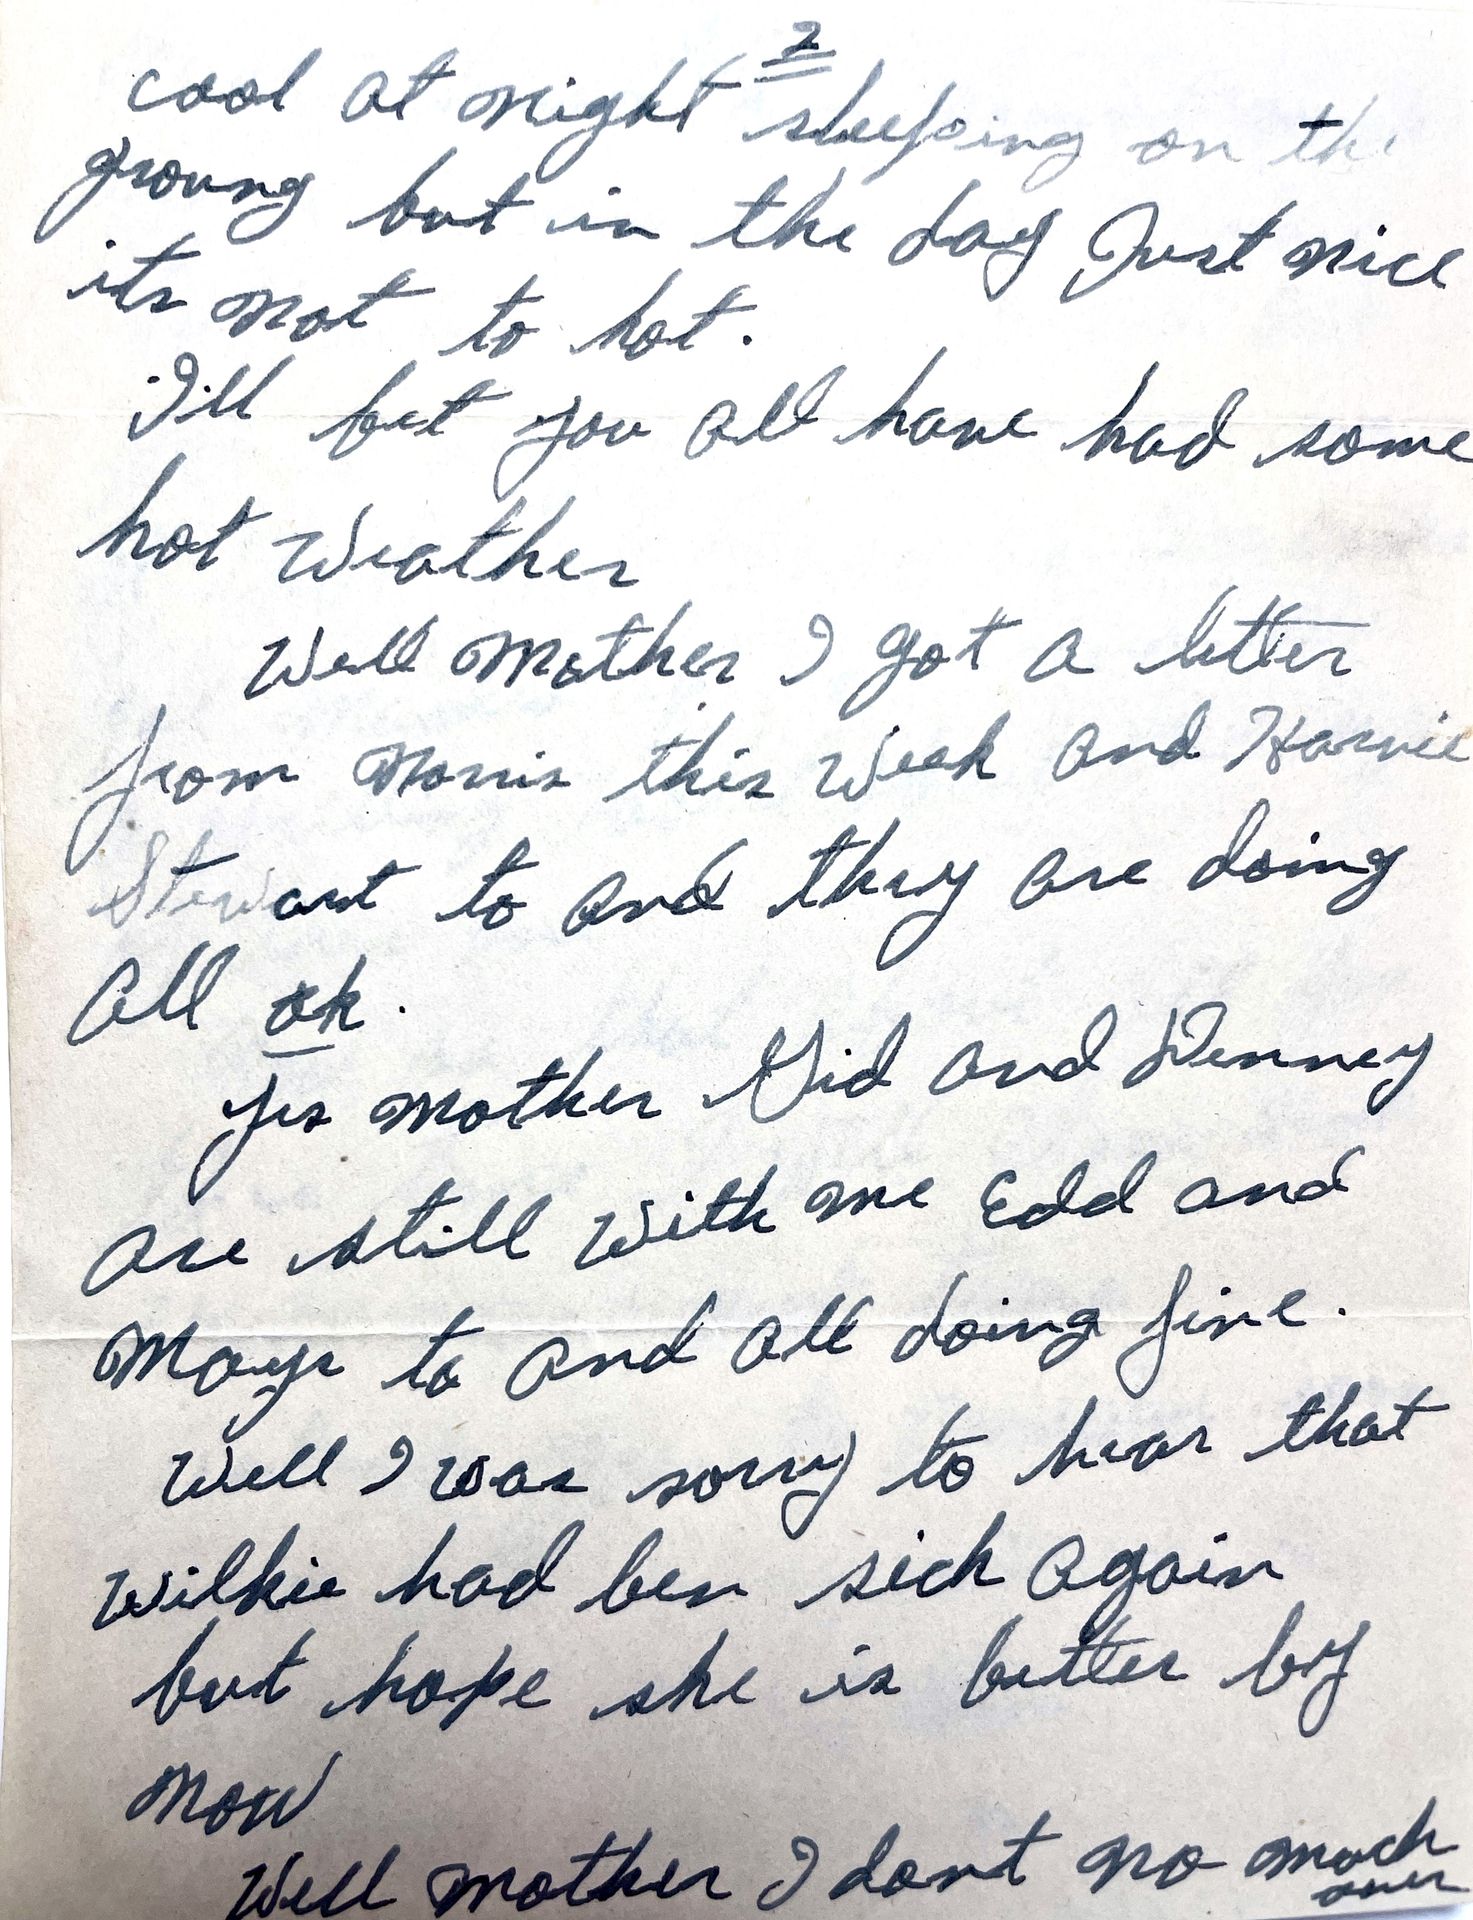 2
cool at night sleeping on the
groung but in the day Just nice
its not to hot.
I'll bet you all have had some
hot weather
Well Mother I got a letter
from Morris this week and Harvie
Stewart to and they are doing
all ok.
yes mother Gid and Denney
are still with me Edd and
Mays to and all doing fine.
Well I was sorry to hear that
wilkie had ben sick again
but hope she is better by
now
Well mother I dont no much
over